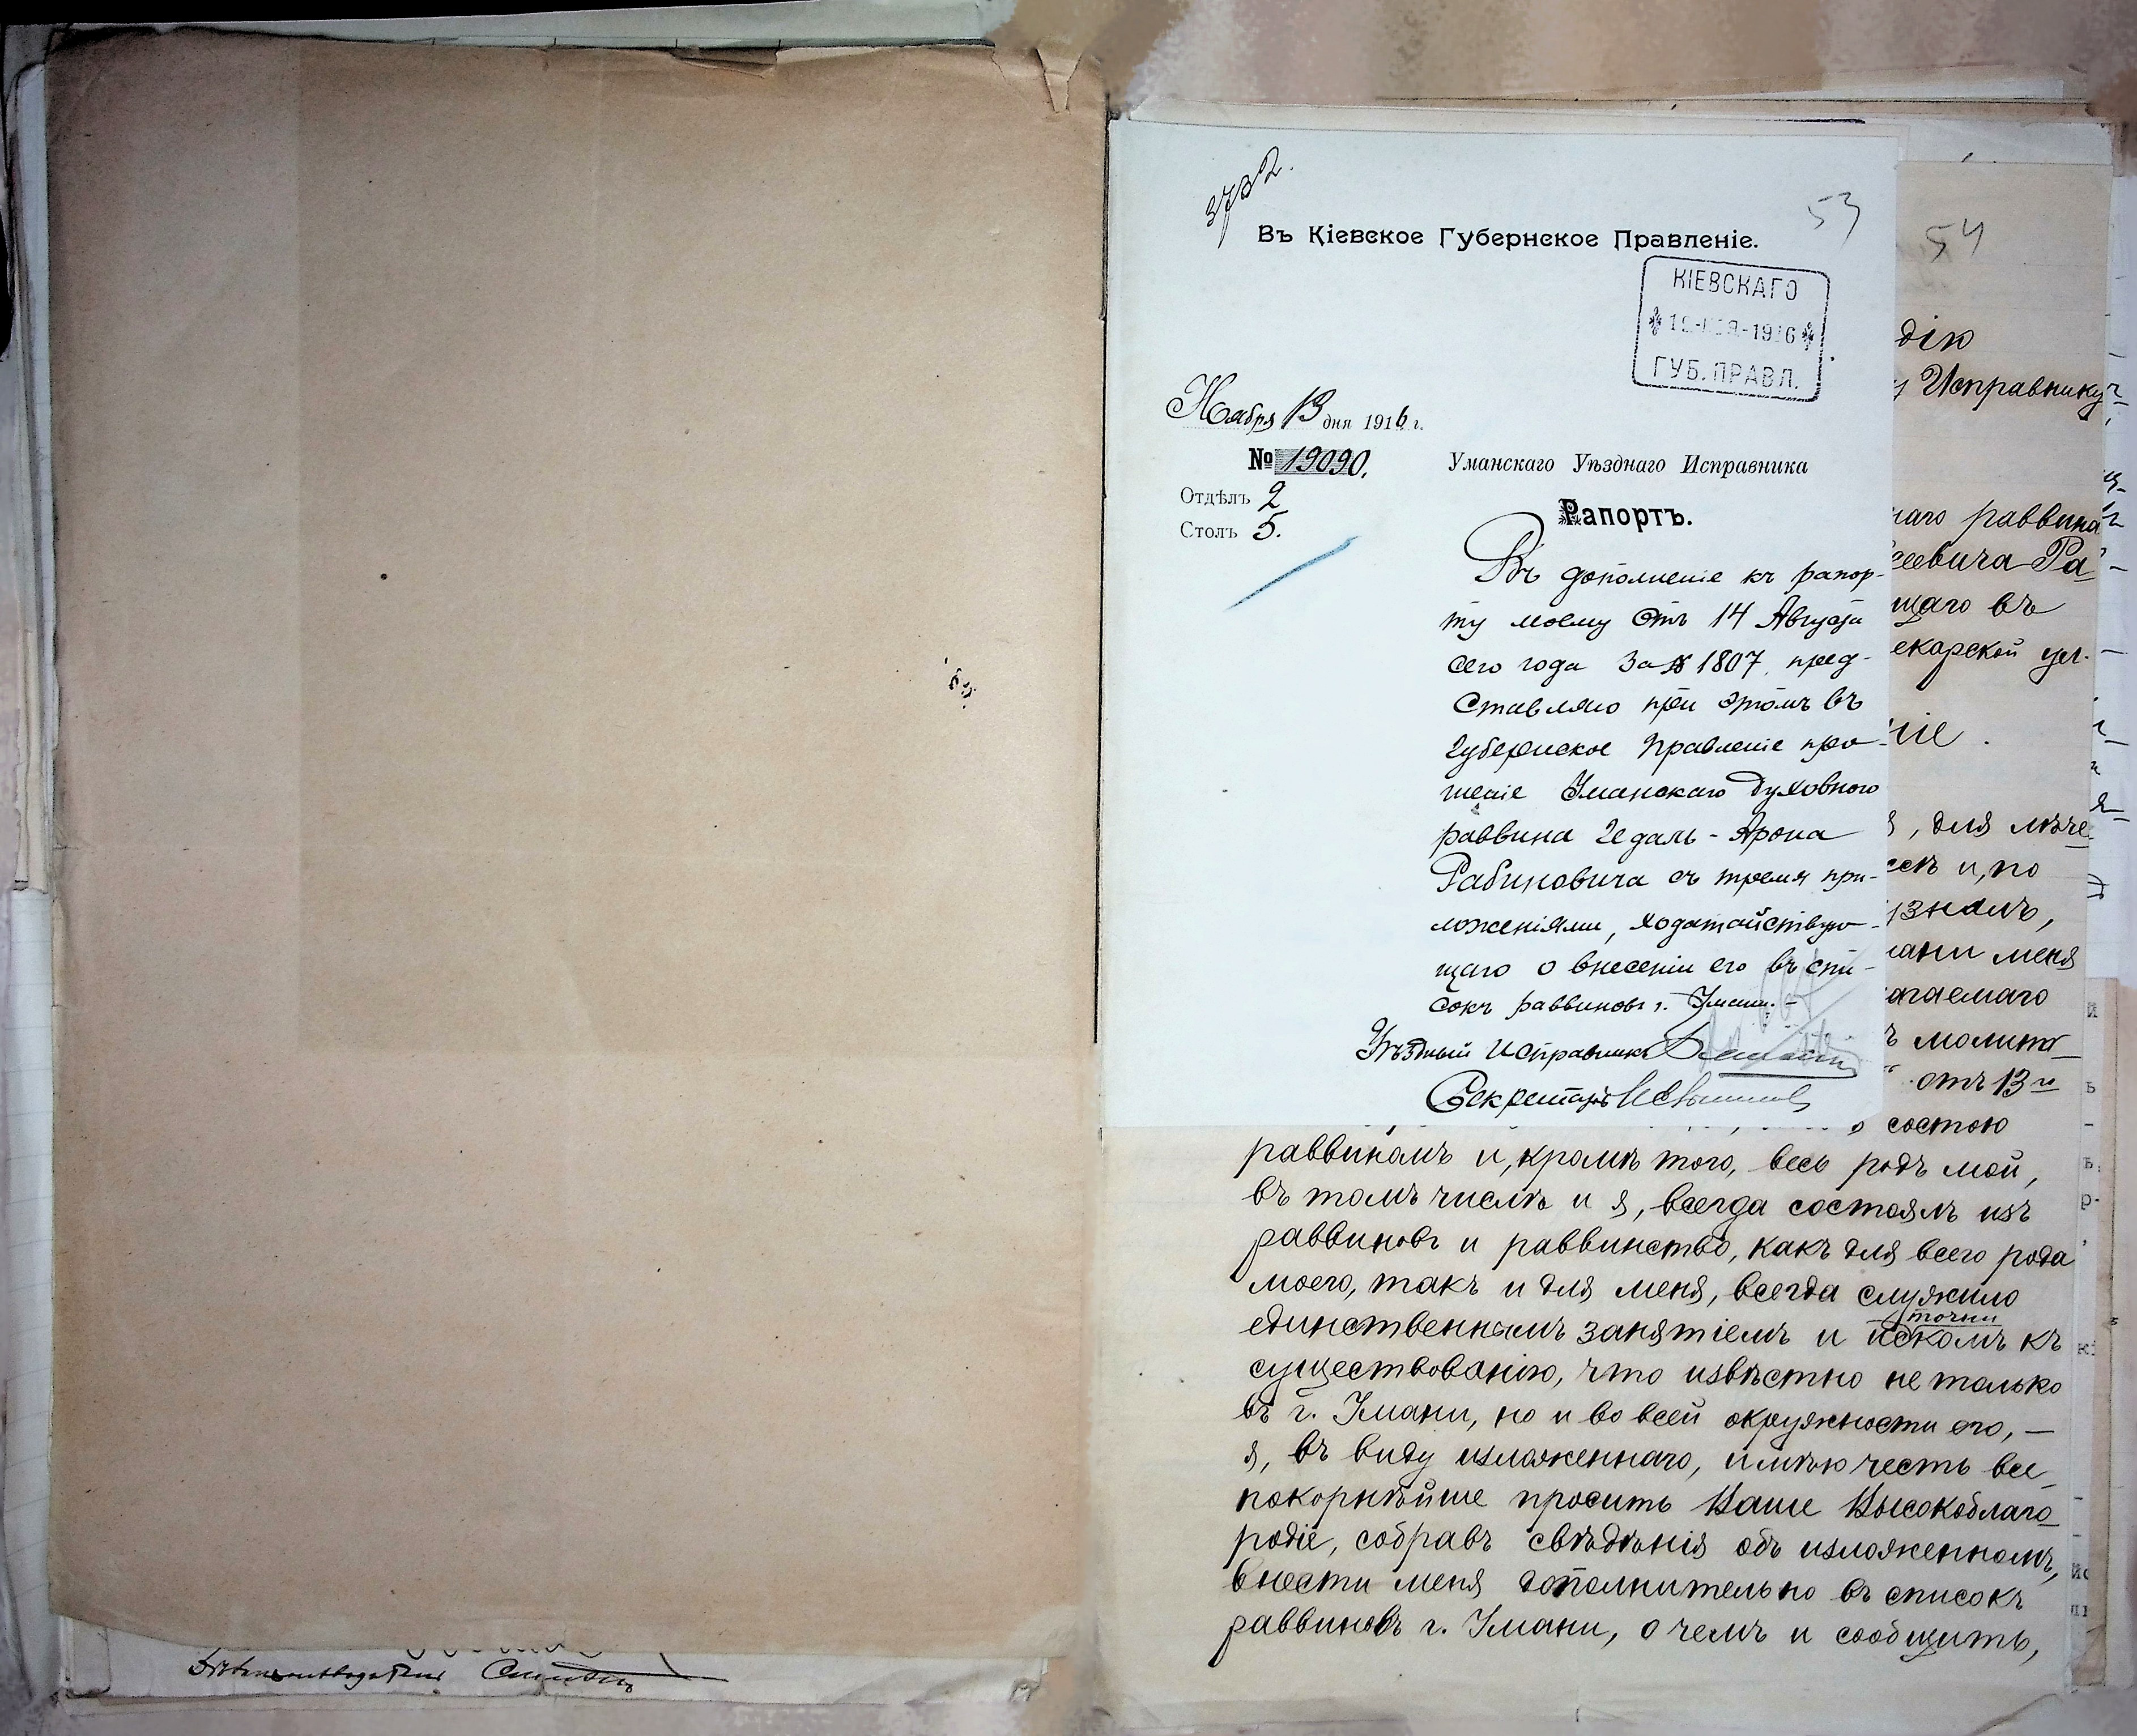 3732.
53
Въ Кіевское Губернское Правленіе.
КІЕВСКАГО
1916
ГУБ. ПРАВЛ.
Ноября 13 дня 1916 г.
№ 19090.
Отдѣлъ 2
Столъ 5.
Уманскаго Уѣзднаго Исправника
Рапортъ.
Въ дополненіе къ рапор-
ту моему отъ 14 Августа
сего года за № 1807, пред-
ставляю при этомъ въ
Губернское Правленіе про-
шеніе Уманскаго духовного
раввина Гедаль-Арона
Рабиновича съ тремя при-
ложеніями, ходатайствую-
щаго о внесеніи его въ спи-
сокъ раввиновъ г. Умани.-
Уѣздный Исправникъ
Секретарь
54
дію
у Исправнику
наго раввина
сеевича Ра
щаго въ
екарской ул.
ніе.
, для лѣче
и, по
ани меня
агаемаго
ъ молит
отъ 13 
состою
раввиномъ и, кромѣ того, весь родъ мой,
въ томъ числѣ и я, всегда состоялъ изъ
раввиновъ и раввинство, какъ для всего рода
моего, такъ и для меня, всегда служило
единственнымъ занятіемъ и
существованію, что извѣстно не только
въ г. Умани, но и во всей окружности его, —
я, въ виду изложеннаго, имѣю честь все
покорнѣйше просить Ваше Высокоблаго
родіе, собравъ свѣдѣнія объ изложенномъ,
внести меня дополнительно въ списокъ
раввиновъ г. Умани, о чемъ и сообщить,